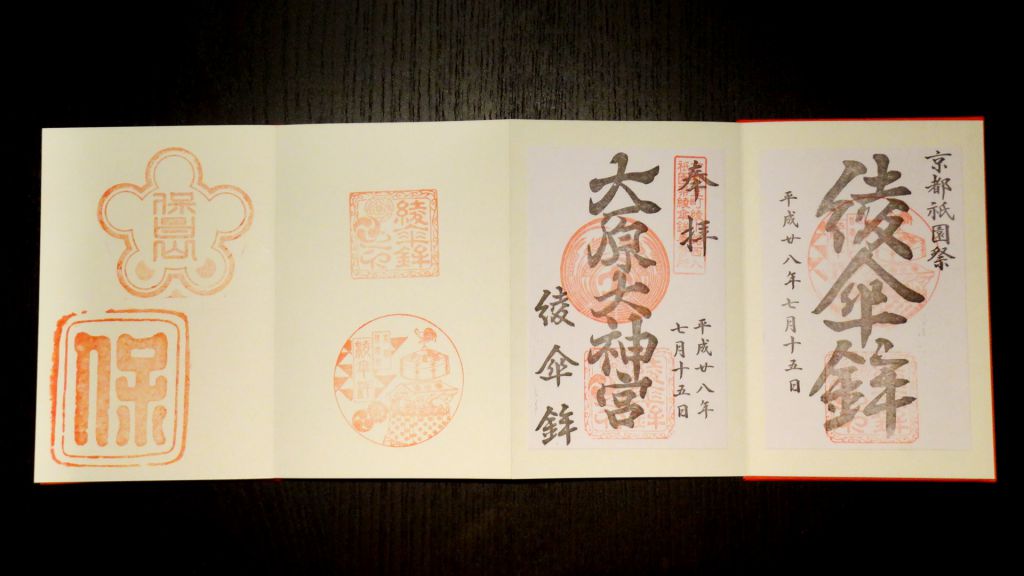 京都祇園祭
綾傘鉾
平成廿八年七月十五日
奉拝
大原大神宮
平成廿八年
七月十五日
綾傘鉾
綾傘鉾
保昌山
保